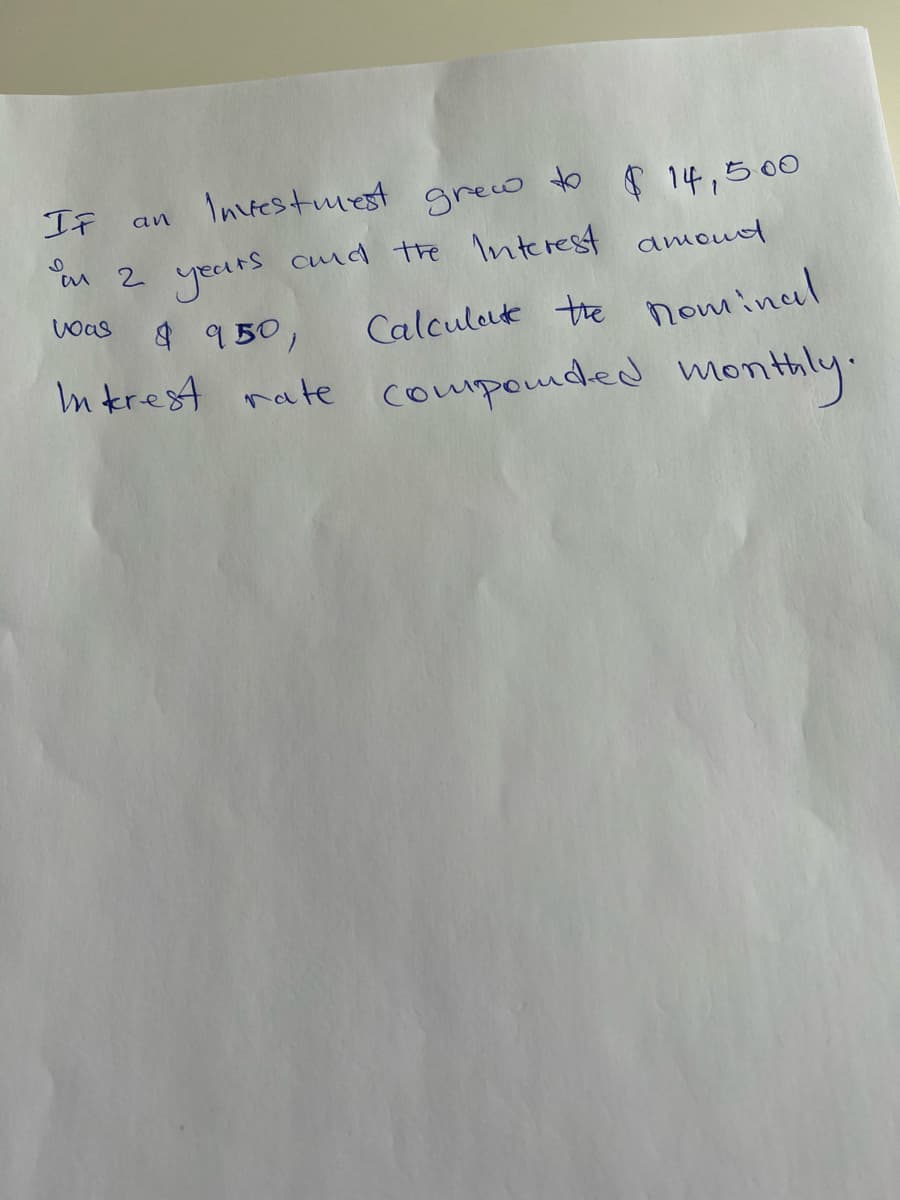 IF an Investment grew to $ 14,500
in 2 years and the Interest amount
was $ 950, Calculate the nominal
Interest rate compounded monthly.